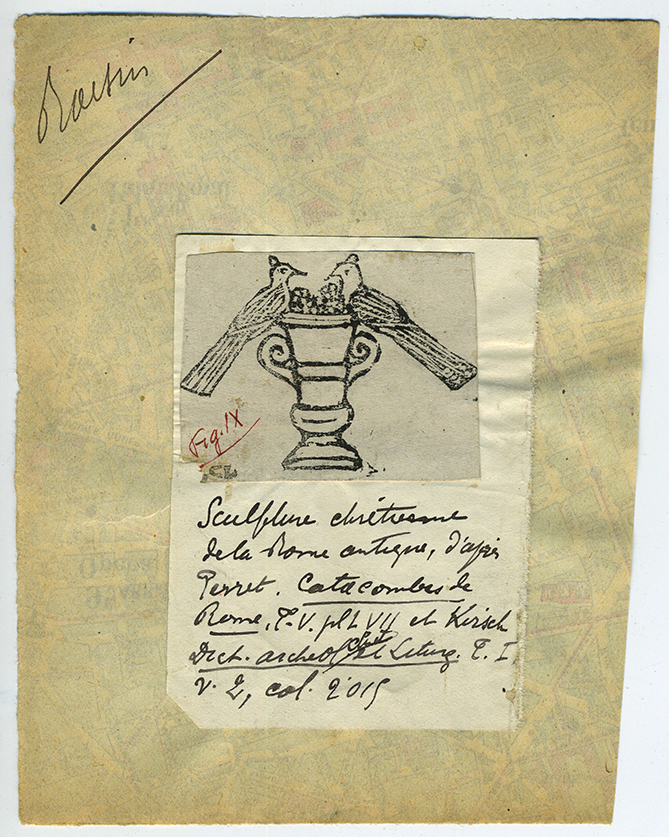 Raisin
Fig. IX
Sculpture chrétienne
de la Rome antique, d'après
Perret. Catacombes de
Rome, T. V. pl LVII et Kirsch
Dict. archeol chret et Liturg. T. I
v. 2, col. 2015